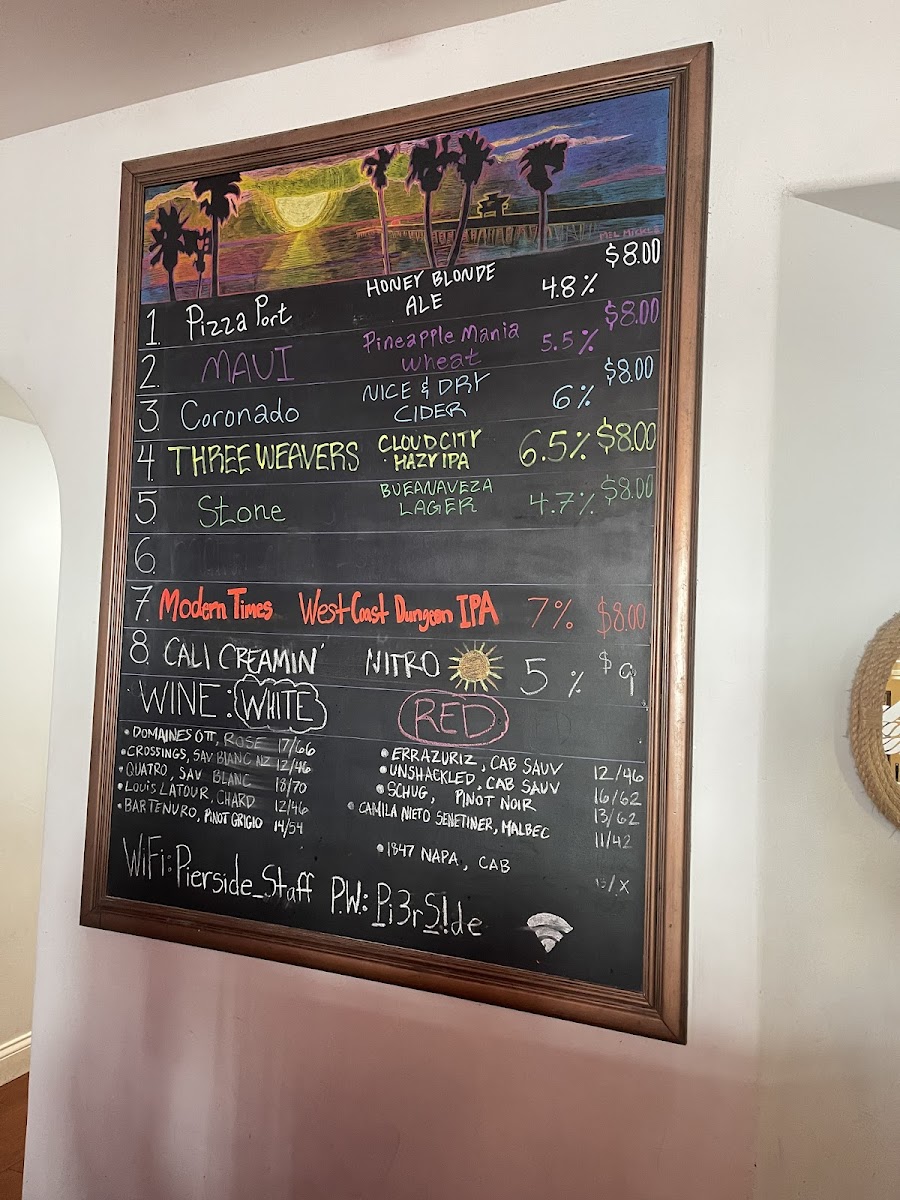 MEL MICKLE
1. Pizza Port HONEY BLONDE ALE 4.8% $8.00
2. MAUI Pineapple Mania Wheat 5.5% $8.00
3. Coronado NICE & DRY CIDER 6% $8.00
4. THREE WEAVERS CLOUD CITY HAZY IPA 6.5% $8.00
5. Stone BUEANAVEZA LAGER 4.7% $8.00
6.
7. Modern Times West Coast Dungeon IPA 7% $8.00
8. CALI CREAMIN' NITRO 5% $9
WINE: WHITE RED
• DOMAINES OTT, ROSE 17/66
• CROSSINGS, SAV BLANC NZ 12/46
• QUATRO, SAV BLANC 18/70
• LOUIS LATOUR, CHARD 12/46
• BARTENURO, PINOT GRIGIO 14/54
• ERRAZURIZ, CAB SAUV 12/46
• UNSHACKLED, CAB SAUV 16/62
• SCHUG, PINOT NOIR 13/62
• CAMILA NIETO SENETINER, MALBEC 11/42
• 1847 NAPA, CAB /X
WiFi: Pierside_Staff P.W.: Pi3rS!de